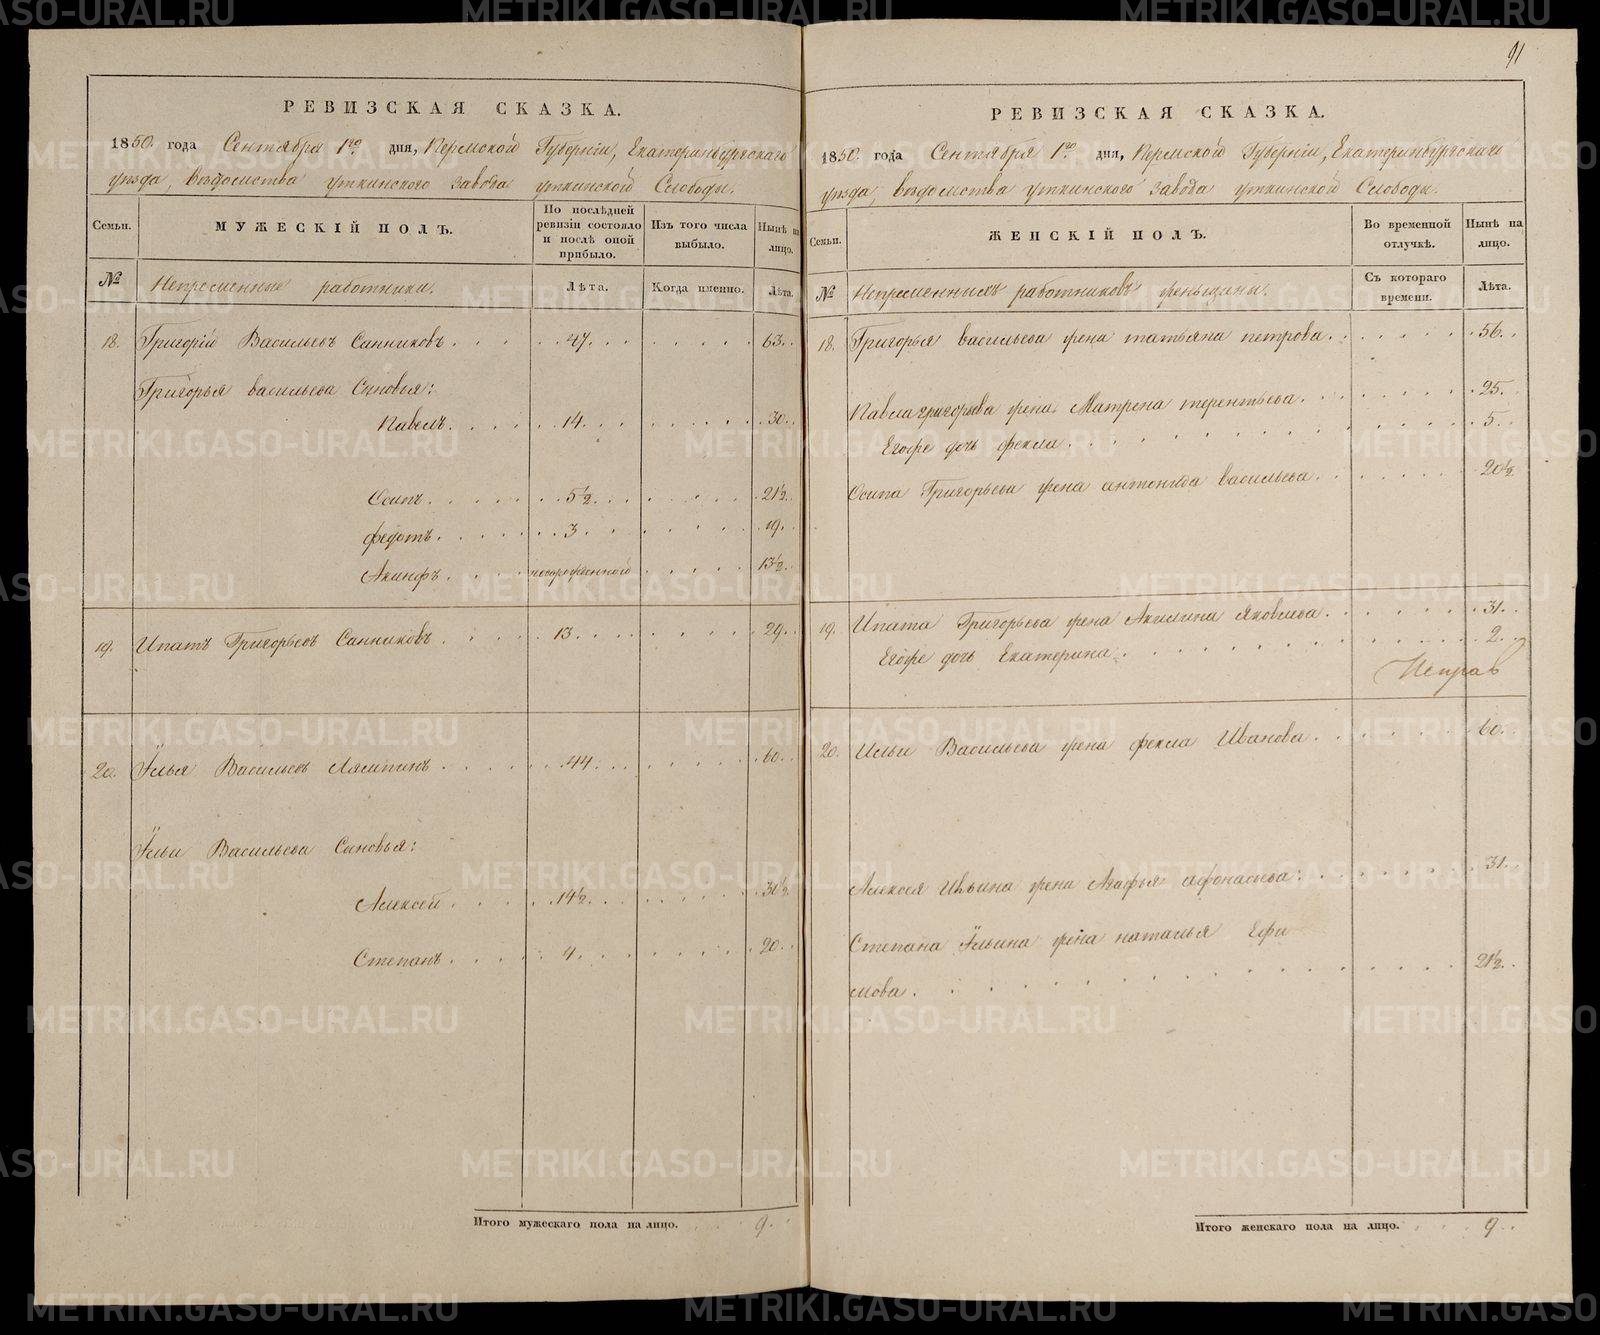 91
РЕВИЗСКАЯ СКАЗКА.
1850. года Сентября 1го. дня, Пермской Губерніи, Екатеринбургскаго
уѣзда, вѣдомства уткинского завода уткинской Слободы.
Семьи.
МУЖЕСКІЙ ПОЛЪ.
По послѣдней ревизіи состояло и послѣ оной прибыло.
Изъ того числа выбыло.
Нынѣ на лицо.
№
Непременные работники.
Лѣта.
Когда именно.
Лѣта.
18. Григорій Васильевъ Санниковъ . . . . . 47. . . . . . . . 63.
Григорья васильева Сыновья:
Павелъ. . . . . 14. . . . . . . 30.
Осипъ. . . . . 5½. . . . . . . 21½.
федотъ. . . . . 3. . . . . . . 19.
Акинфъ. . . . новорожденной . . . . . 13½.
19. Ипатъ Григорьевъ Санниковъ . . . . 13. . . . . . . 29.
20. Илья Васильевъ Лямпинъ . . . . . 44. . . . . . . 60.
Ильи Васильева Сыновья:
Алексей . . . . 14½. . . . . . . 30½.
Степанъ . . . . 4. . . . . . . 20.
Итого мужескаго пола на лицо. . . . 9. .
РЕВИЗСКАЯ СКАЗКА.
1850. года Сентября 1го. дня, Пермской Губерніи, Екатеринбургскаго
уѣзда, вѣдомства уткинского завода уткинской Слободы.
Семьи.
ЖЕНСКІЙ ПОЛЪ.
Во временной отлучкѣ.
Нынѣ на лицо.
№
Непременныхъ работниковъ женщины.
Съ котораго времени.
Лѣта.
18. Григорья васильева жена татьяна петрова. . . . . . . 56. .
Павла григорьева жена Матрена терентьева. . . . . . . 25.
Егоже дочь фекла . . . . . . . . . . . 5. .
Осипа Григорьева жена антонида васильева. . . . . . . 20½
19. Ипата Григорьева жена Акилина Яковлева. . . . . . . 31. .
Егоже дочь Екатерина. . . . . . . . . . . 2. .
Исправ
20. Ильи Васильева жена фекла Иванова. . . . . . . 60.
Алексея Ильина жена Агафья афонасьева. . . . . . . 31. .
Степана Ильина жена наталья Ефи
мова. . . . . . . . . . . . 21½. .
Итого женскаго пола на лицо. . . . 9. .
METRIKI.GASO-URAL.RU